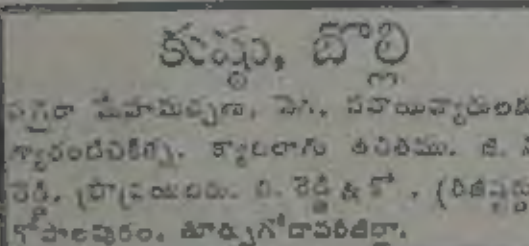 కుష్ఠు, బొల్లి
వగైరా మేహమచ్చలు, సెగ, సవాయివ్యాధులకు
గ్యారంటిచికిత్స. క్యాటలాగు ఉచితము. జి.
రెడ్డి, ప్రొప్రయిటరు. రెడ్డి & కో., (రిజిష్టర్డు
గోపాలపురం, తూర్పుగోదావరిజిల్లా.